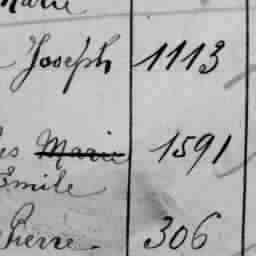 Marie
Joseph 1113
es Marie 1591
Emile
Pierre 306